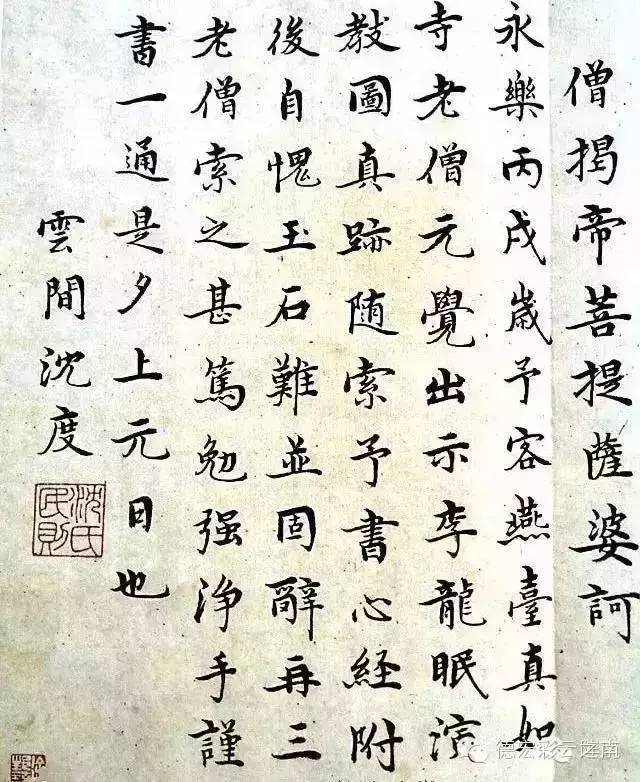 僧揭帝菩提薩婆訶
永樂丙戌歲予客燕臺真如
寺老僧元覺出示李龍眠演
教圖真跡随索予書心経附
後自愧玉石難並固辭再三
老僧索之甚篤勉强浄手謹
書一通是夕上元日也
雲間沈度
沈氏民則
德宏彩云陆南